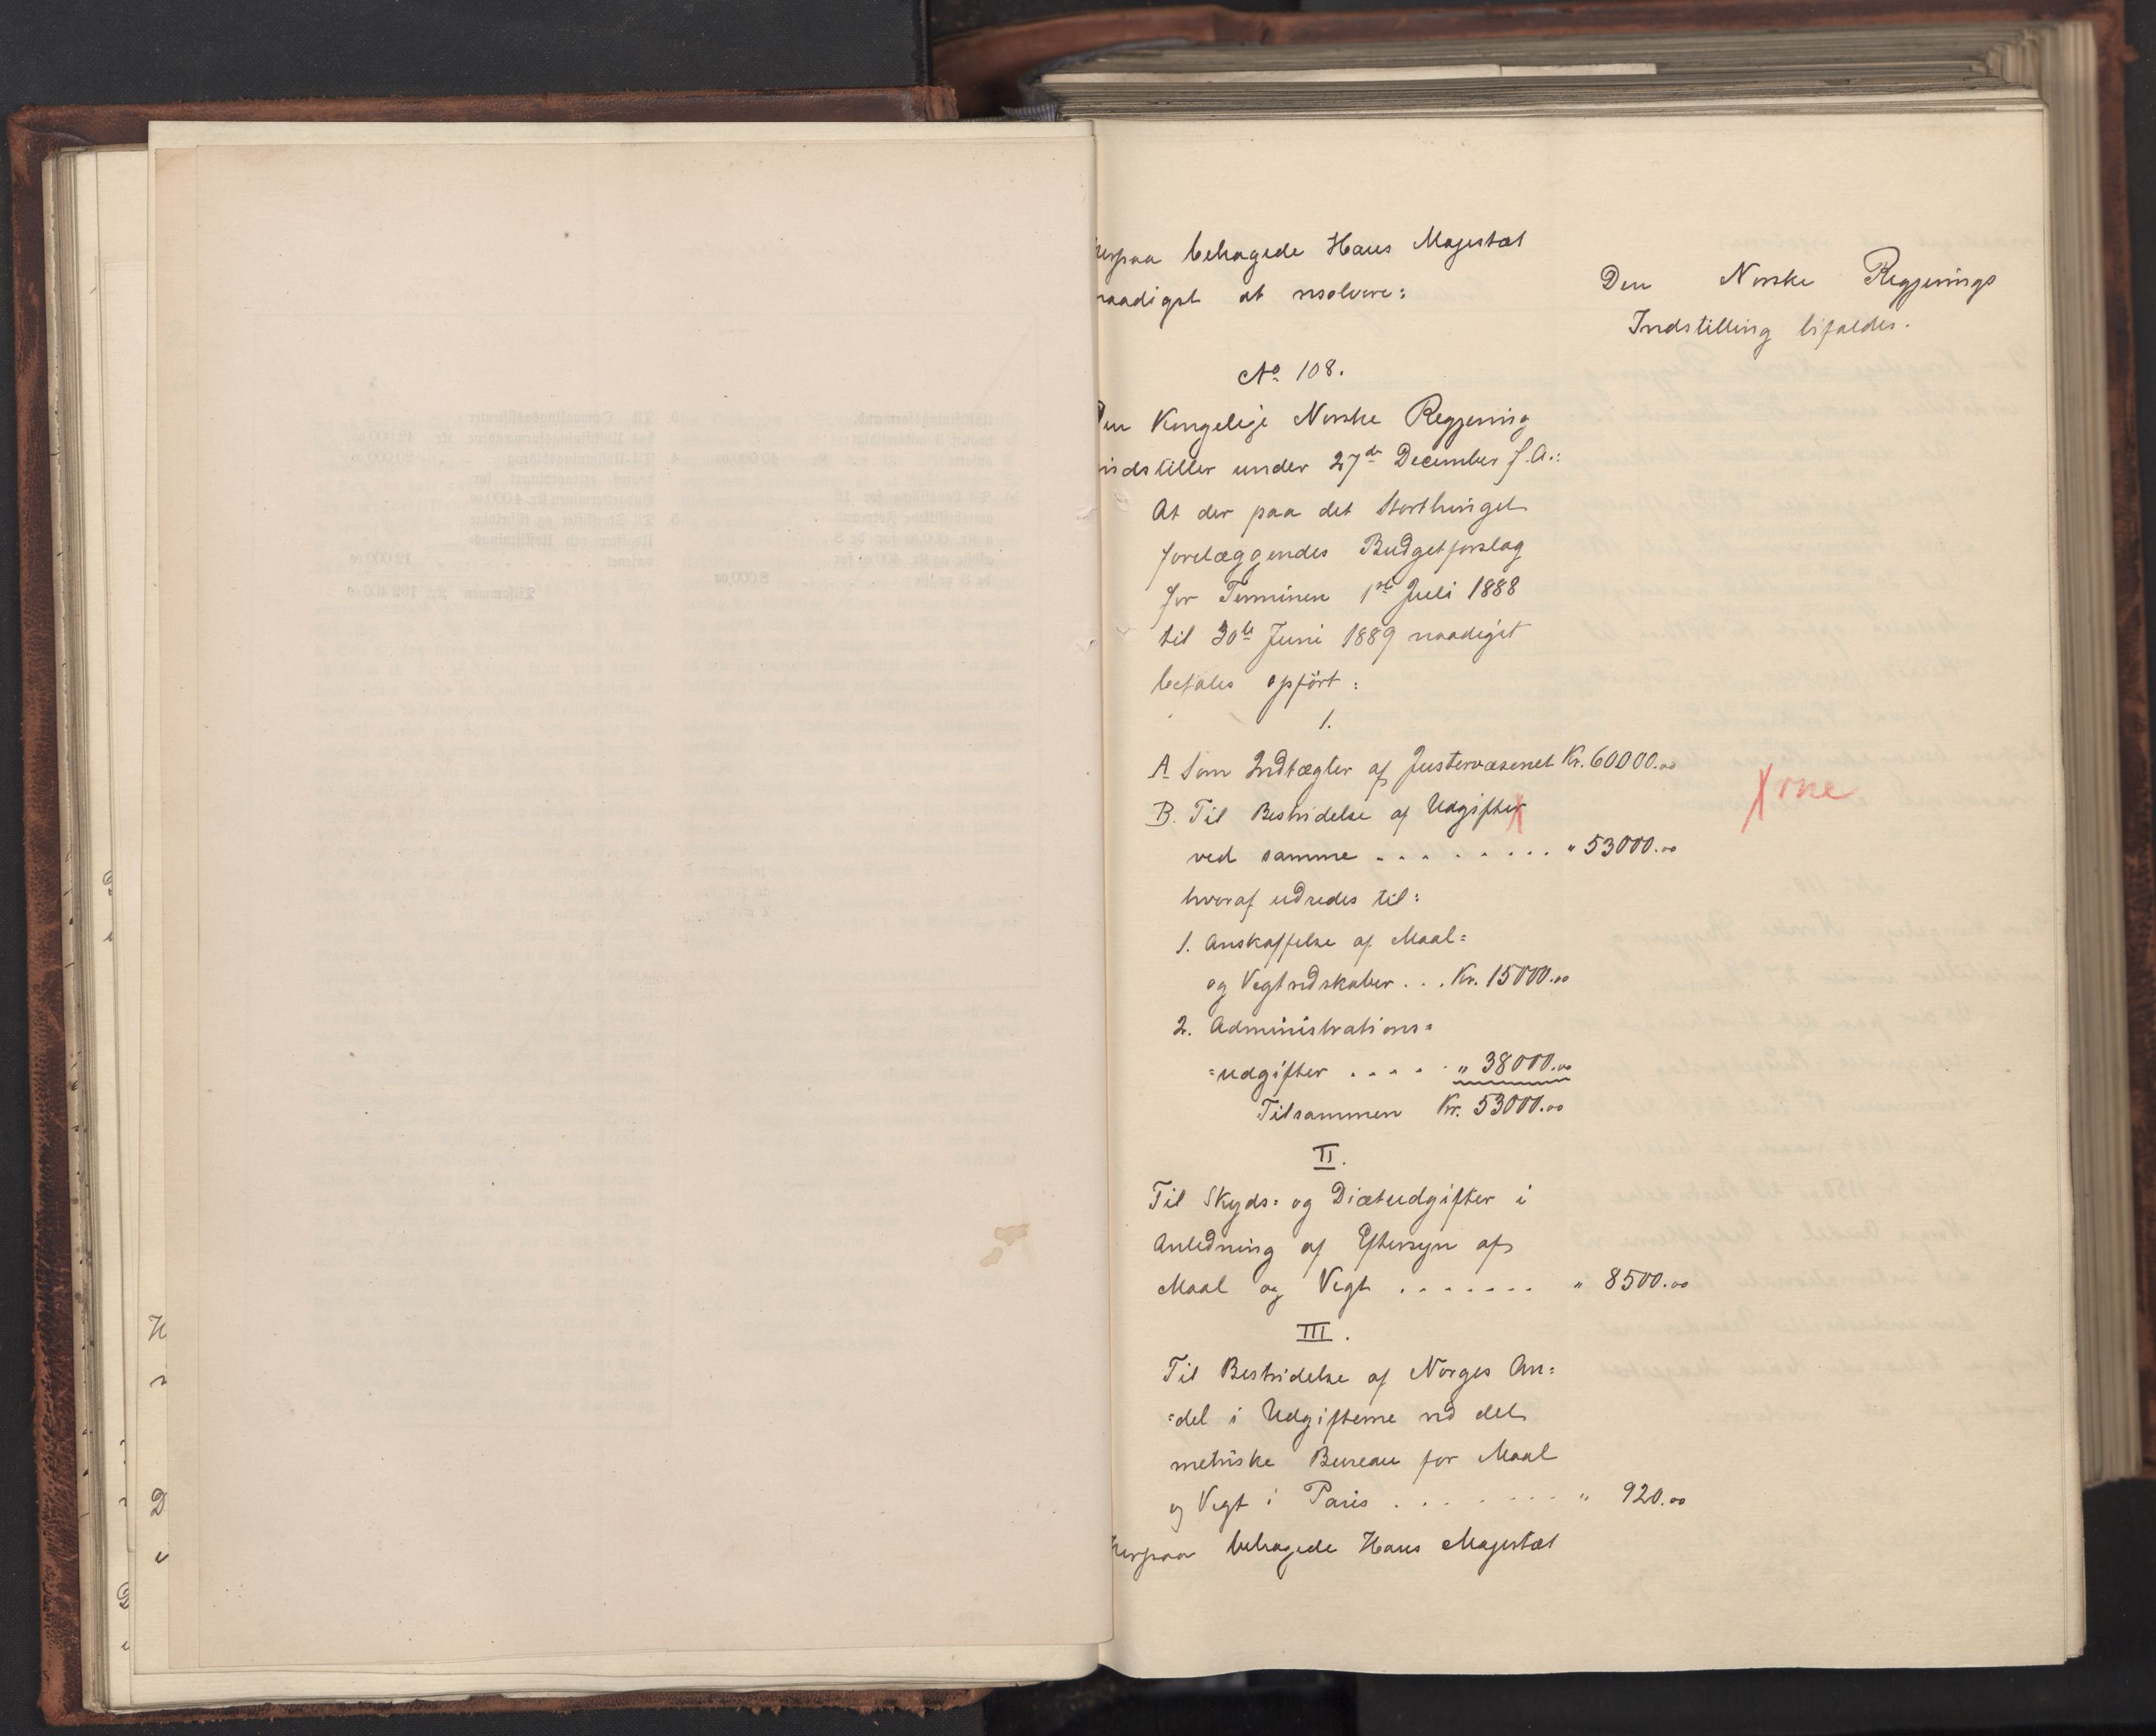 herpaa behagede Hans Majestæt
naadigst at resolvere:
Den Norske Regjerings
Indstilling bifaldes.
No 108.
Den Kongelige Norske Regjering
indstiller under 27de December f.A.:
At der paa det Storthinget
forelæggendes Budgetforslag
for Terminen 1ste Juli 1888
til 30te Juni 1889 naadigst
befales opført:
1.
A Som Indtægter af Justervæsenet Kr. 60000.00
B. Til Bestridelse af Udgifter
X rne
ved samme . . . . . . . . . " 53000.00
hvoraf udredes til:
1. Anskaffelse af Maal=
og Vegtredskaber . . . Kr. 15000.00
2. Administrations=
=udgifter . . . . . " 38000.00
Tilsammen Kr. 53000.00
II.
Til Skyds= og Diætudgifter i
Anledning af Eftersyn af
Maal og Vegt . . . . . . . " 8500.00
III.
Til Bestridelse af Norges An=
=del i Udgifterne ved det
metriske Bureau for Maal
og Vegt i Paris . . . . . . . . " 920.00
herpaa behagede Hans Majestæt